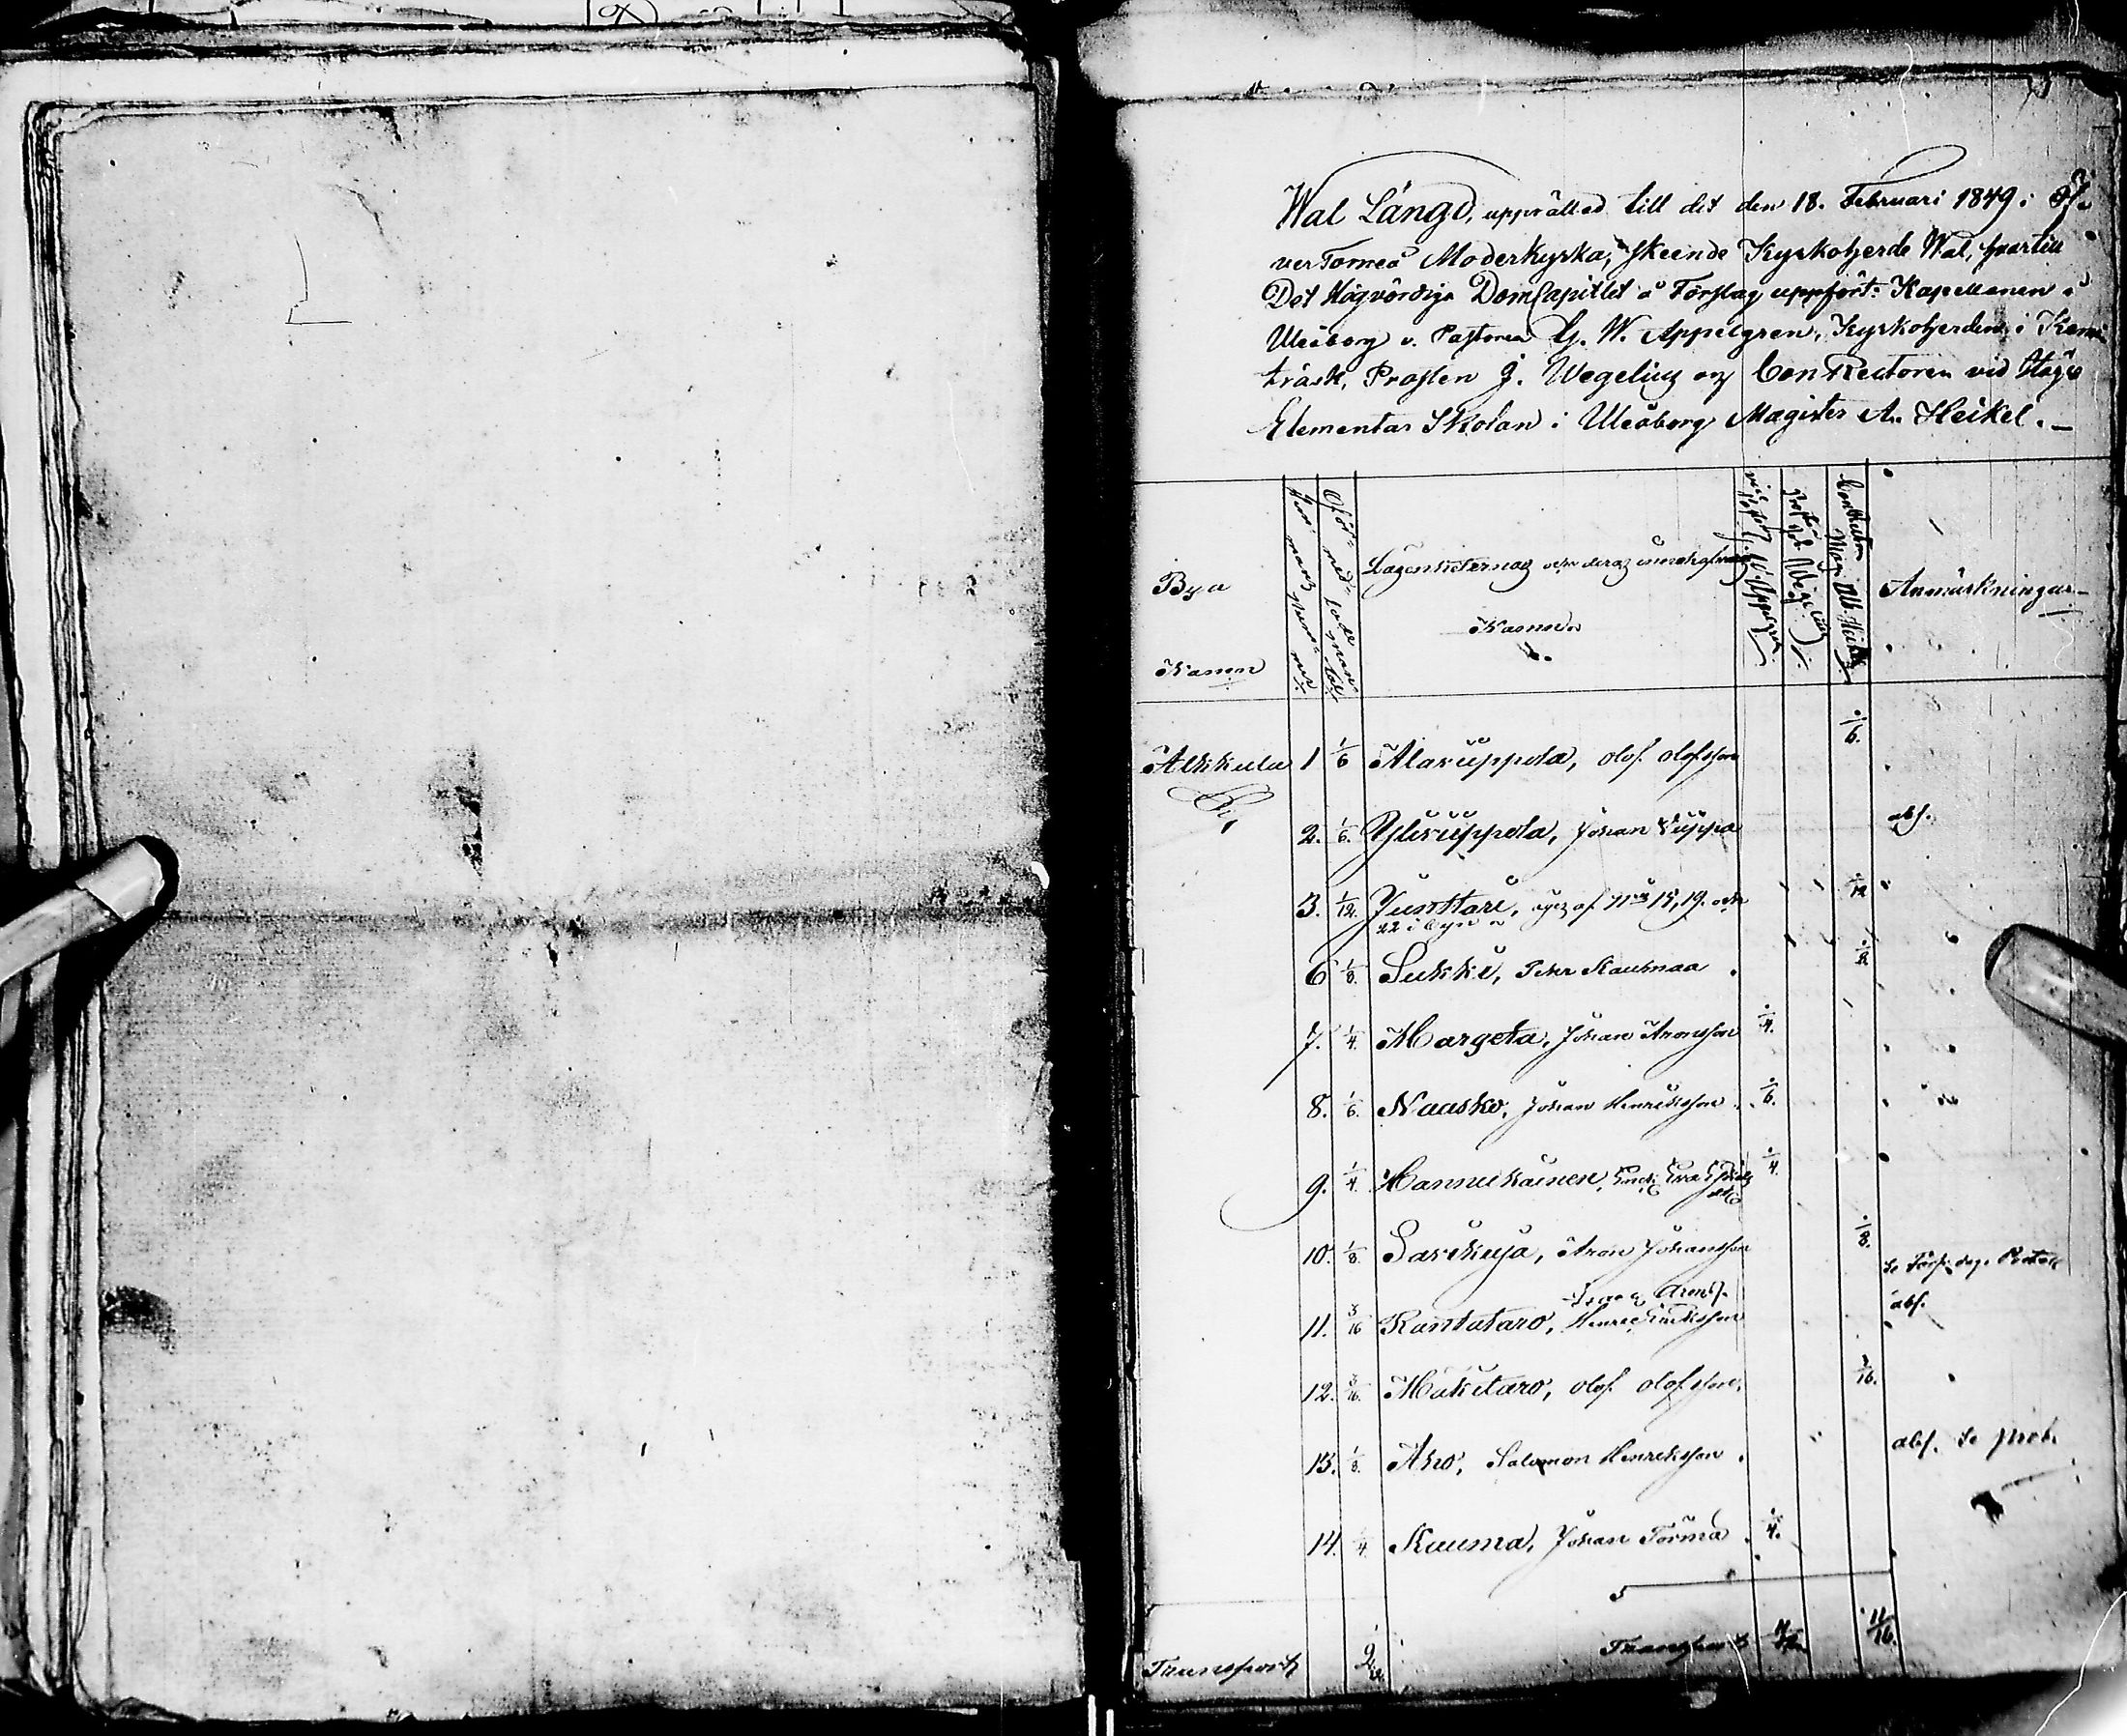 Wal Längd, upprättad till det den 18. Februari 1849 i Öf-
ver Torneå Moderkyrka, skeende Kyrkoherde Wal, hvartill
Det Högvördiga DomCapitlet å Förslag uppfört: Kapellanen i
Uleåborg v. Pastoren G. W. Appelgren, Kyrkoherden i Kemi
träsk, Prosten J. Wegelius och ConRectoren vid Högre
Elementar Skolan i Uleåborg Magister A. Heikel.
Bya Namn
Hemmans Nummer
Oförmedlade mantal
Lägenheternas och deras innehafvares Namn
Appelgren
Prosten Wegelius
ConRectorn Mag. Alb. Heikel
Anmärkningar
Alkkula By, 1 1/6 Alarüppola, Olof Olofsson 1/6.
2. 1/6. Ylirüppola, Johan abs.
3. 1/12. Junttari, af 15, 19. och 22 i byn 1/12
6 1/8. Sukki, Peter 1/8
7. 1/4. Margeta, Johan Aronsson 1/4.
8. 1/6. Naasko, Johan Henriksson 1/6.
9. 1/4. Hannukainen, Eva 1/4.
10. 1/8. Sarikuja, Aron Johansson 1/8.
Se
11. 3/16 Kantataro, Henric Erickson abs.
12. 3/16. Mäkitaro, Olof Olofsson 3/16.
13. 1/8. Aho, Salomon Henriksson abs. Se prot.
14. 1/4. Kauma, Johan Törmä 1/4.
Transport 2 Transport 11/16.